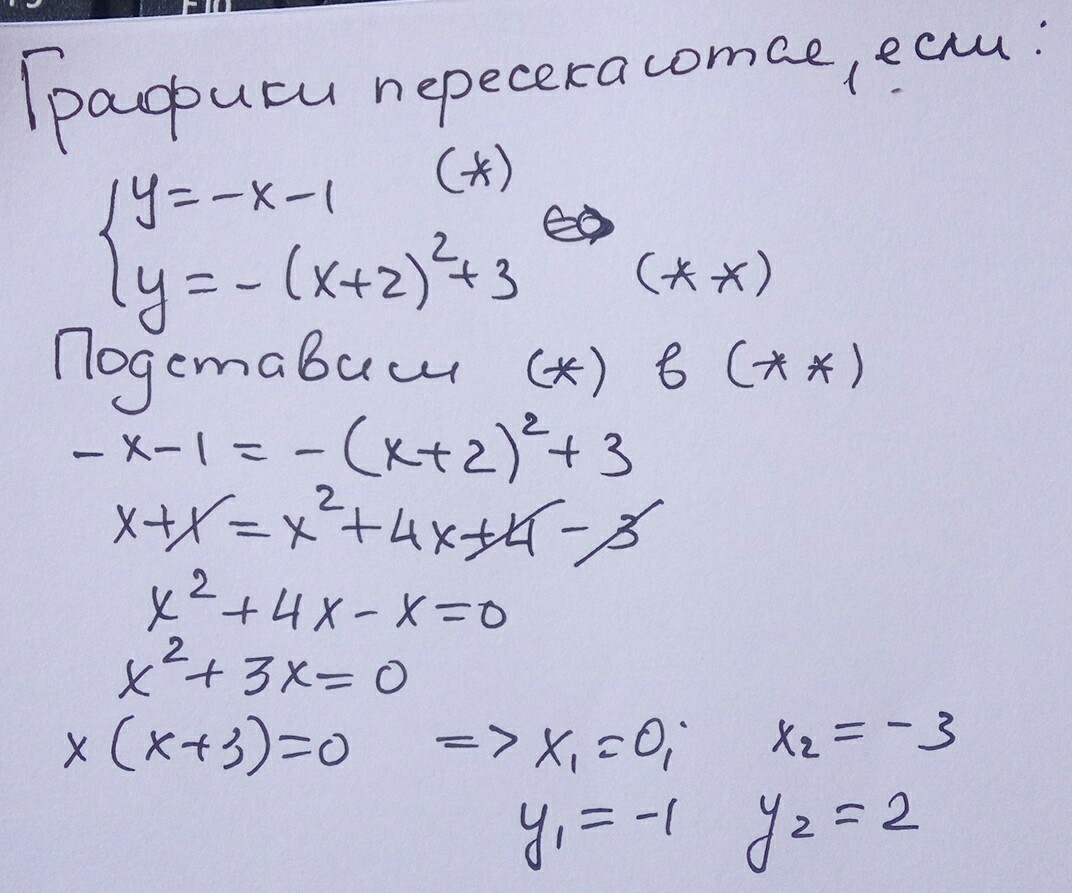 F10
Графики пересекаются, если:
{ y = -x-1 (*)
y = -(x+2)²+3 (**)
Подставим (*) в (**)
-x-1 = -(x+2)²+3
x+1 = x²+4x+4-3
x²+4x-x=0
x²+3x=0
x(x+3)=0 => x₁=0; x₂=-3
y₁=-1 y₂=2